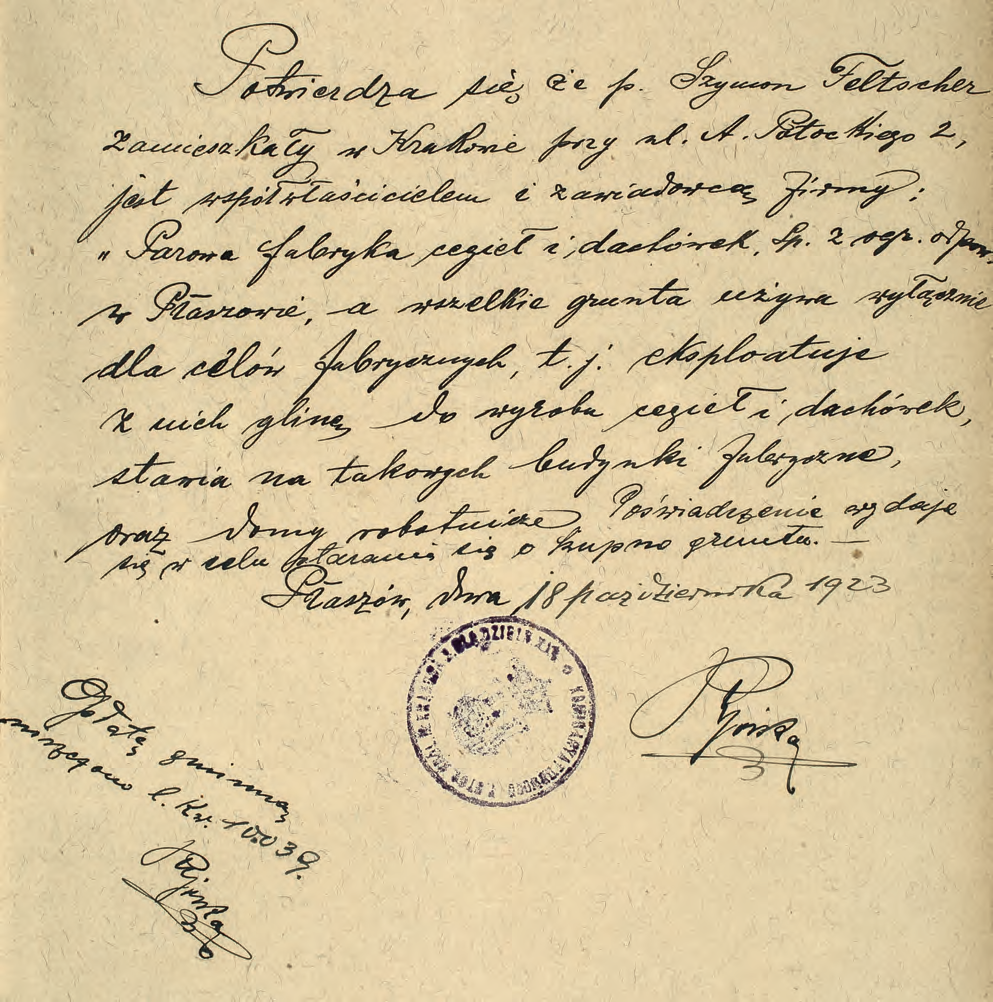 Potwierdza się, że p. Szymon Feltscher
zamieszkały w Krakowie przy ul. A. Potockiego 2,
jest współwłaścicielem i zawiadowcą firmy:
„ Parowa fabryka cegieł i dachówek, Sp. z ogr. odpow.
w Płaszowie, a wszelkie grunta używa wyłącznie
dla celów fabrycznych, t. j. eksploatuje
z nich glinę do wyrobu cegieł i dachówek,
stawia na takowych budynki fabryczne,
oraz domy robotnicze. Poświadczenie wydaje
się w celu starania się o kupno gruntu. —
Płaszów, dnia 18 października 1923
Opłatę gminną
l. Kw. 10.039.